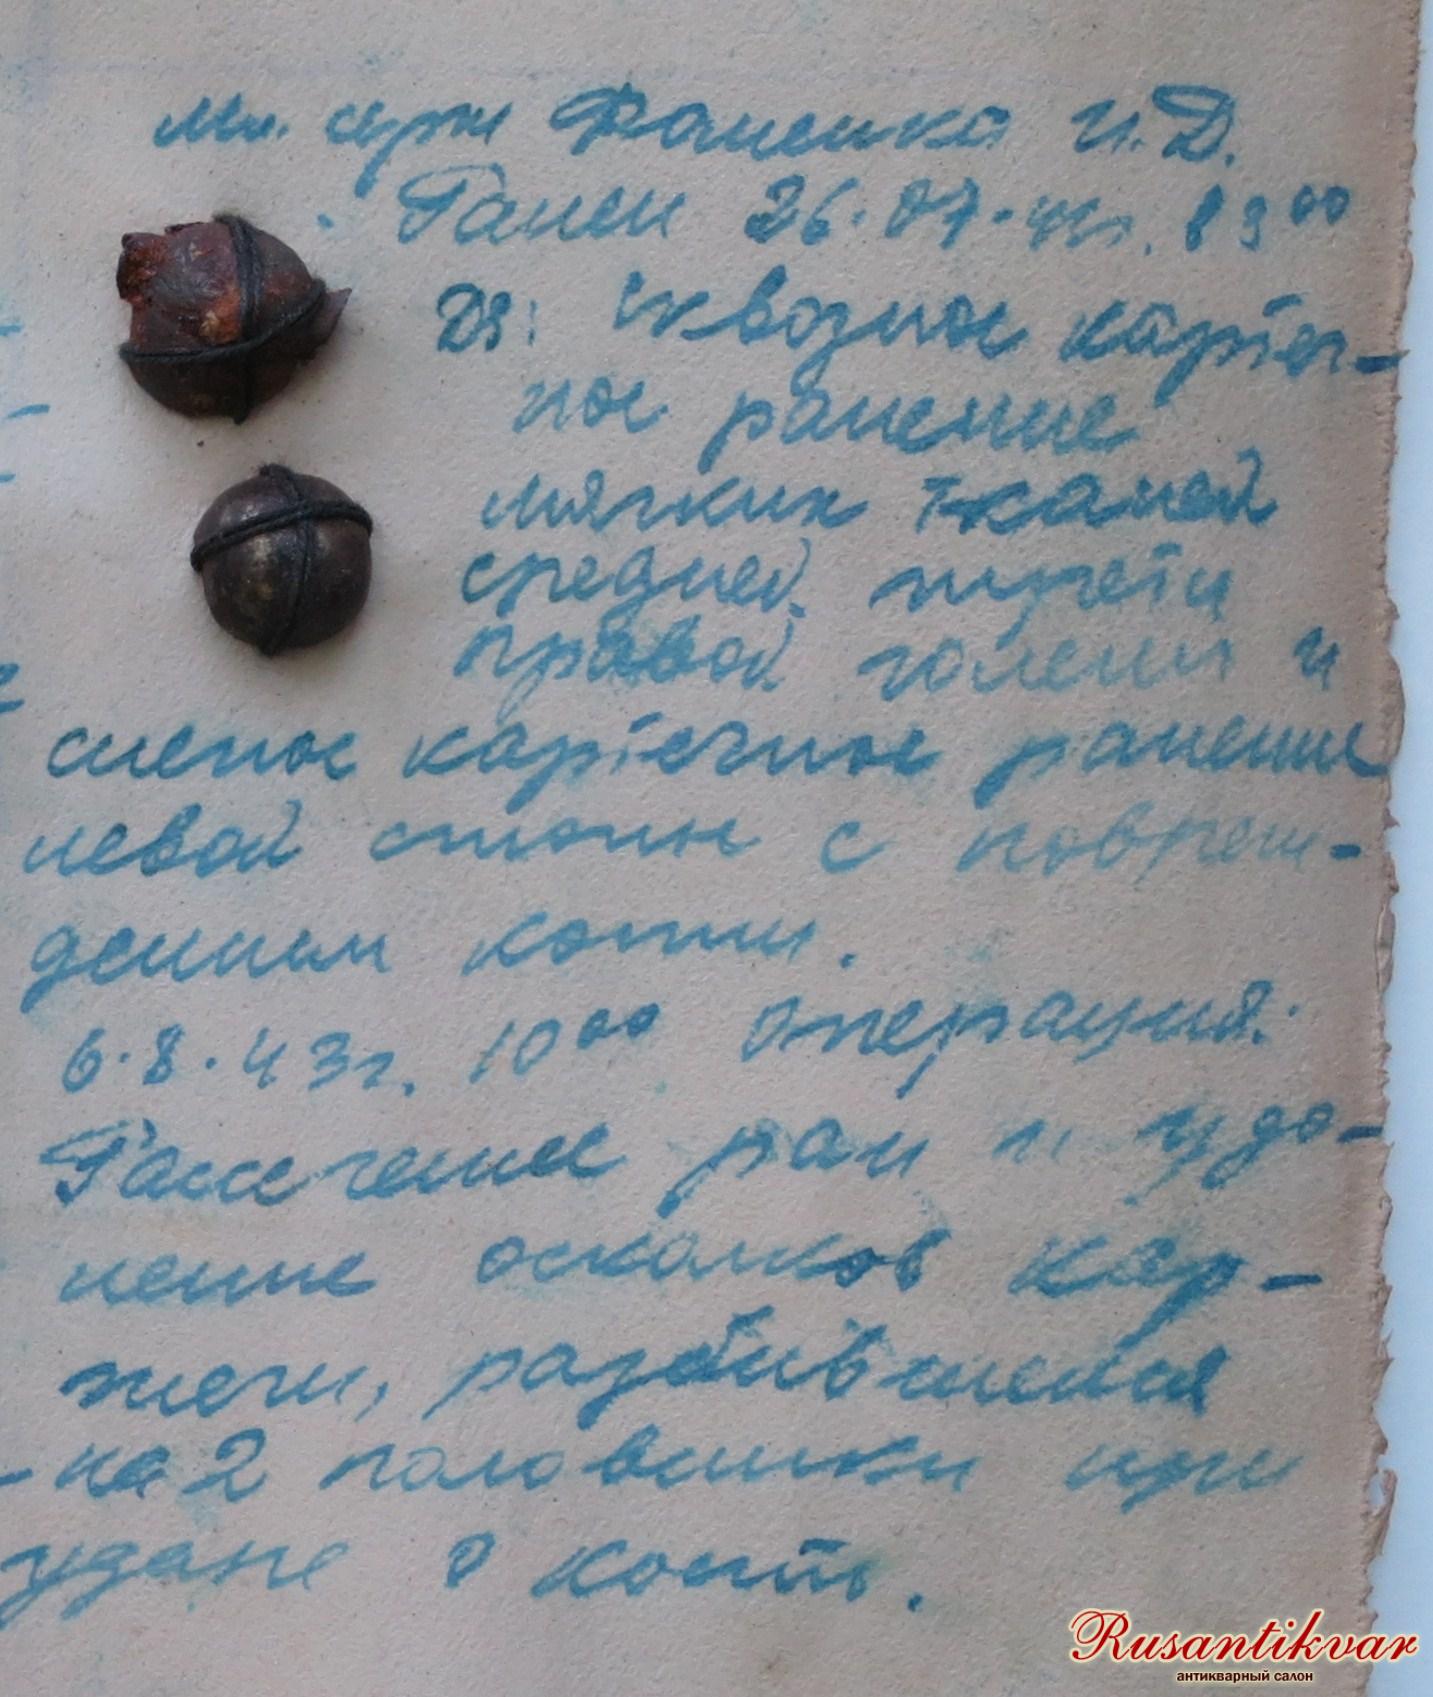 Мл. серж Фаненко И.Д.
Ранен 26.07.43г. в 9⁰⁰
DS: Сквозное картеч-
ное ранение
мягких тканей
средней трети
правой голени и
слепое картечное ранение
левой стопы с повреж-
дением кости.
6.8.43г. 10⁰⁰ Операция:
Рассечение ран и уда-
ление осколков кар-
течи, разбившейся
на 2 половинки при
ударе о кость.
Rusantikvar
антикварный салон